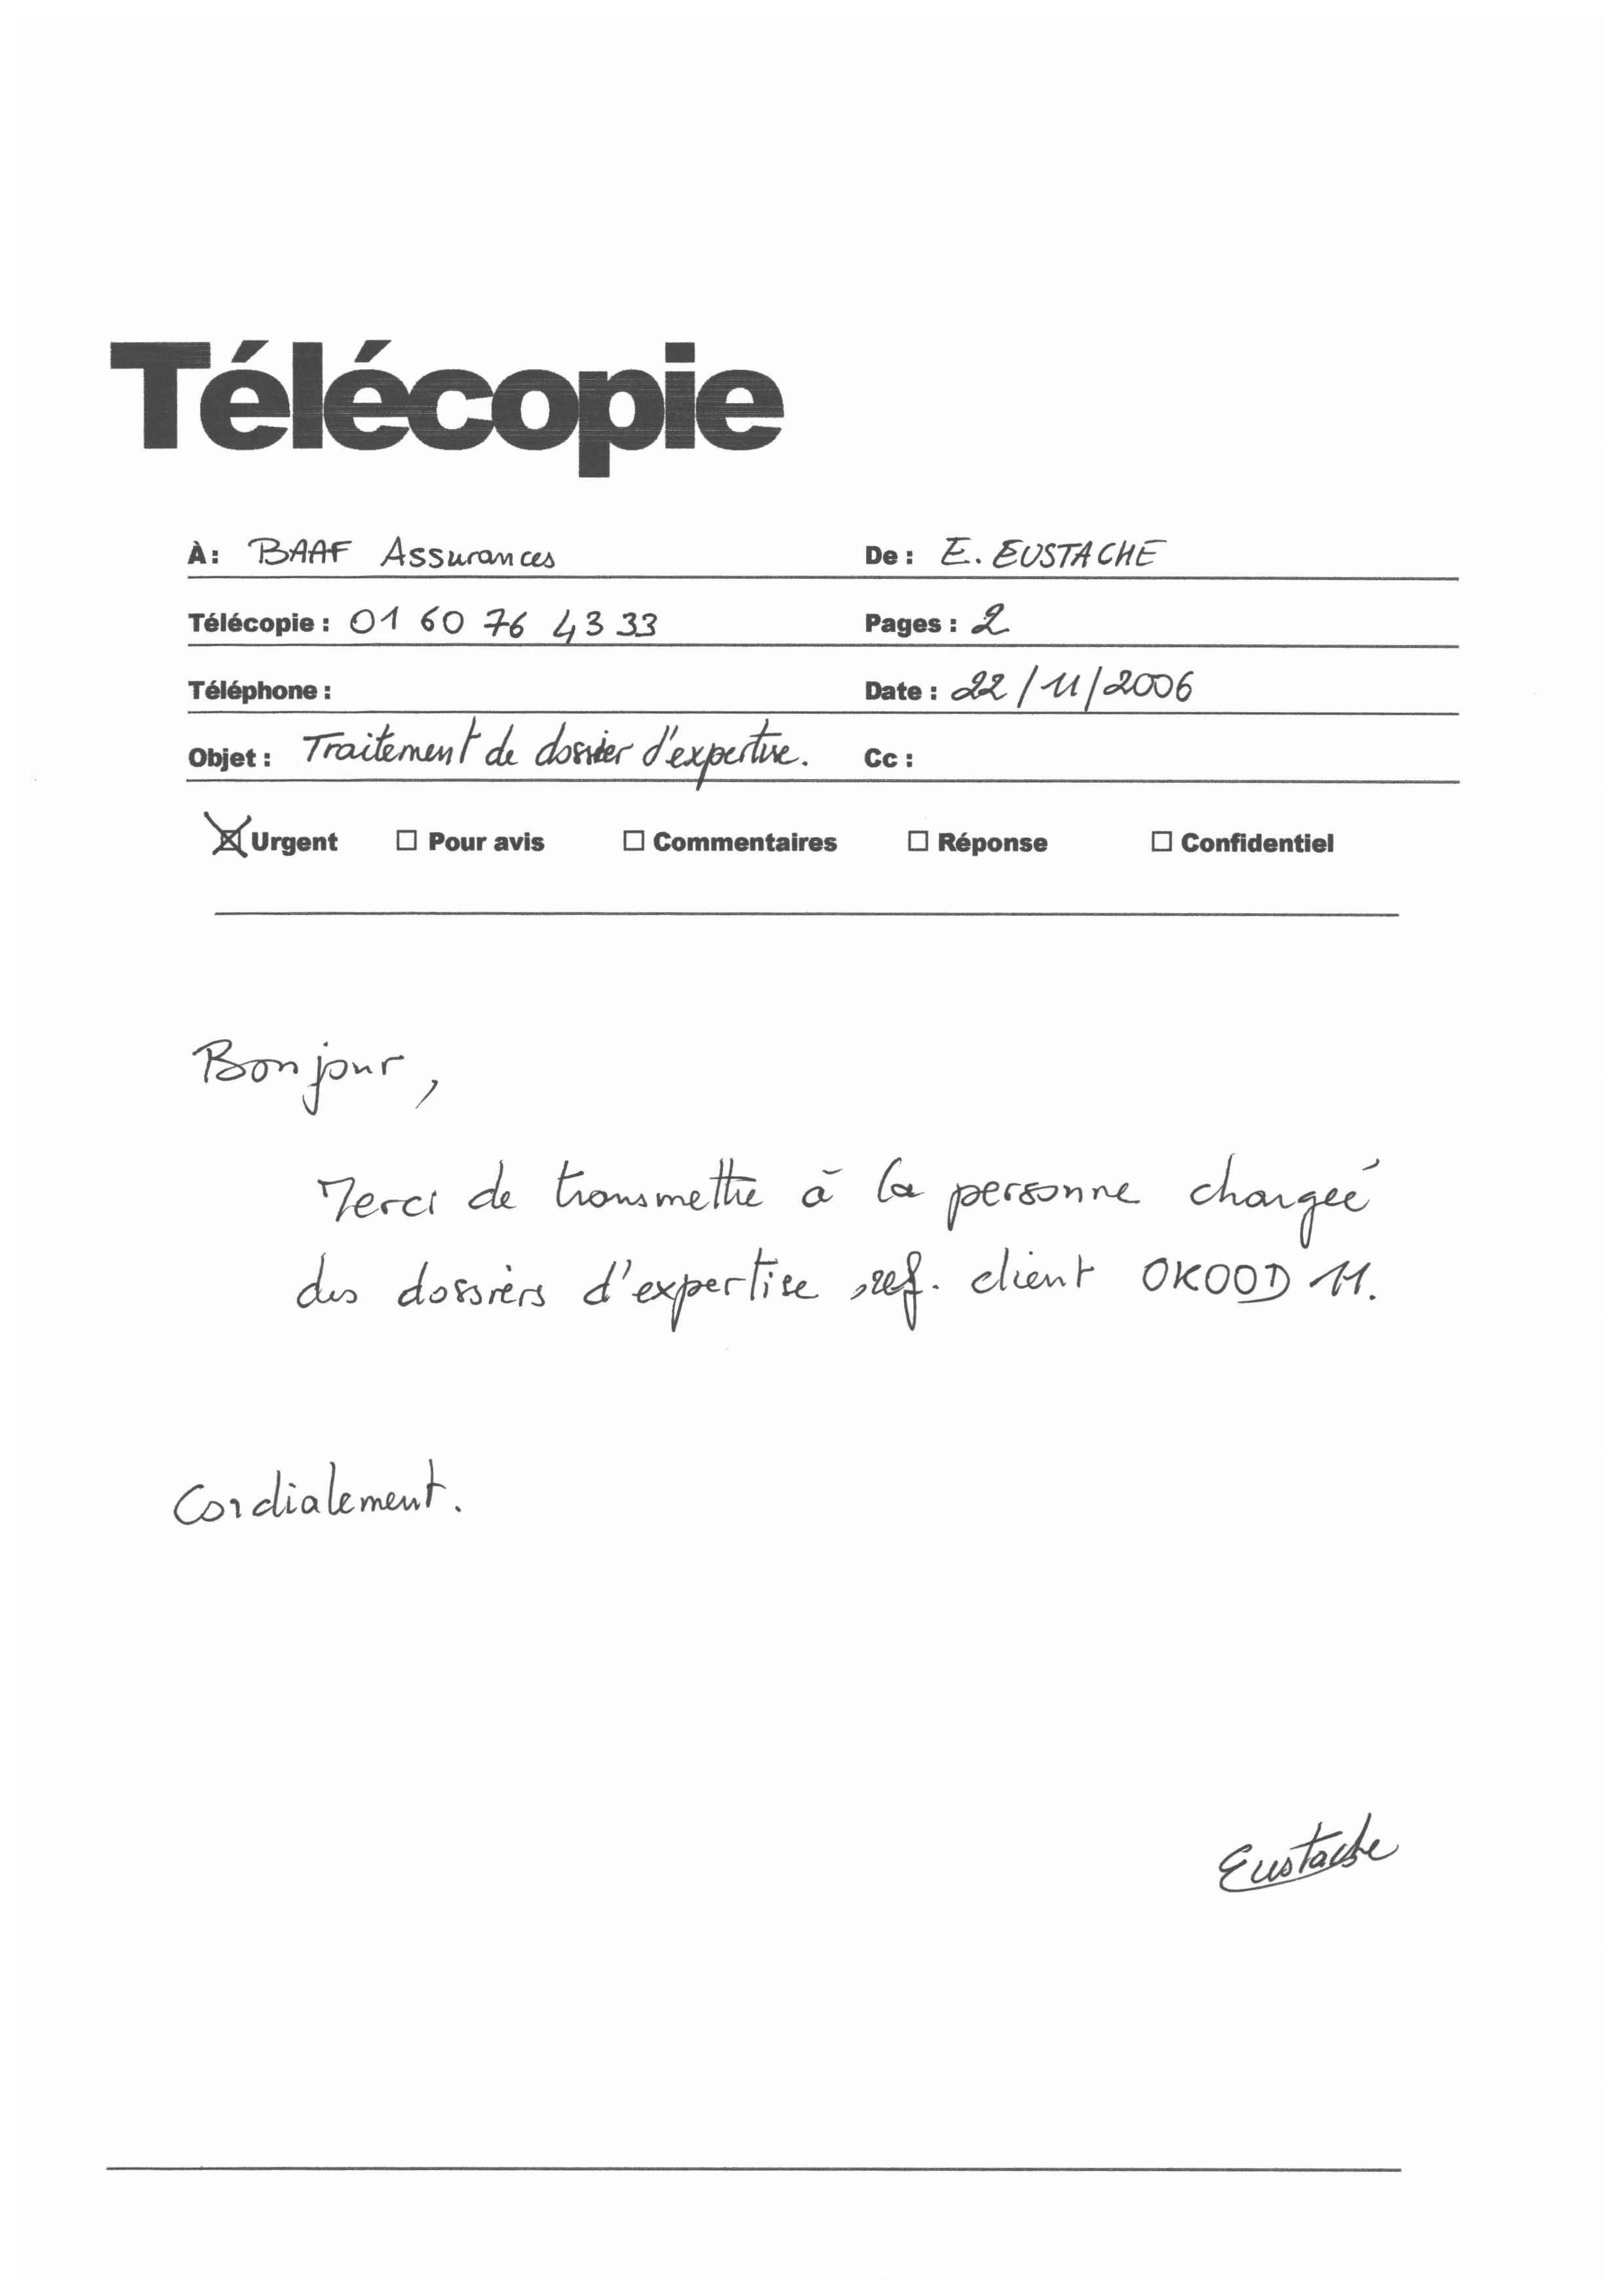 Télécopie
À : BAAF Assurances De : E. EUSTACHE
Télécopie : 01 60 76 43 33 Pages : 2
Téléphone : Date : 22/11/2006
Objet : Traitement de dossier d'expertise. Cc :
Urgent Pour avis Commentaires Réponse Confidentiel
Bonjour,
Merci de transmettre à la personne chargée
des dossiers d'expertise ref. client OKOOD 11.
Cordialement.
Eustache